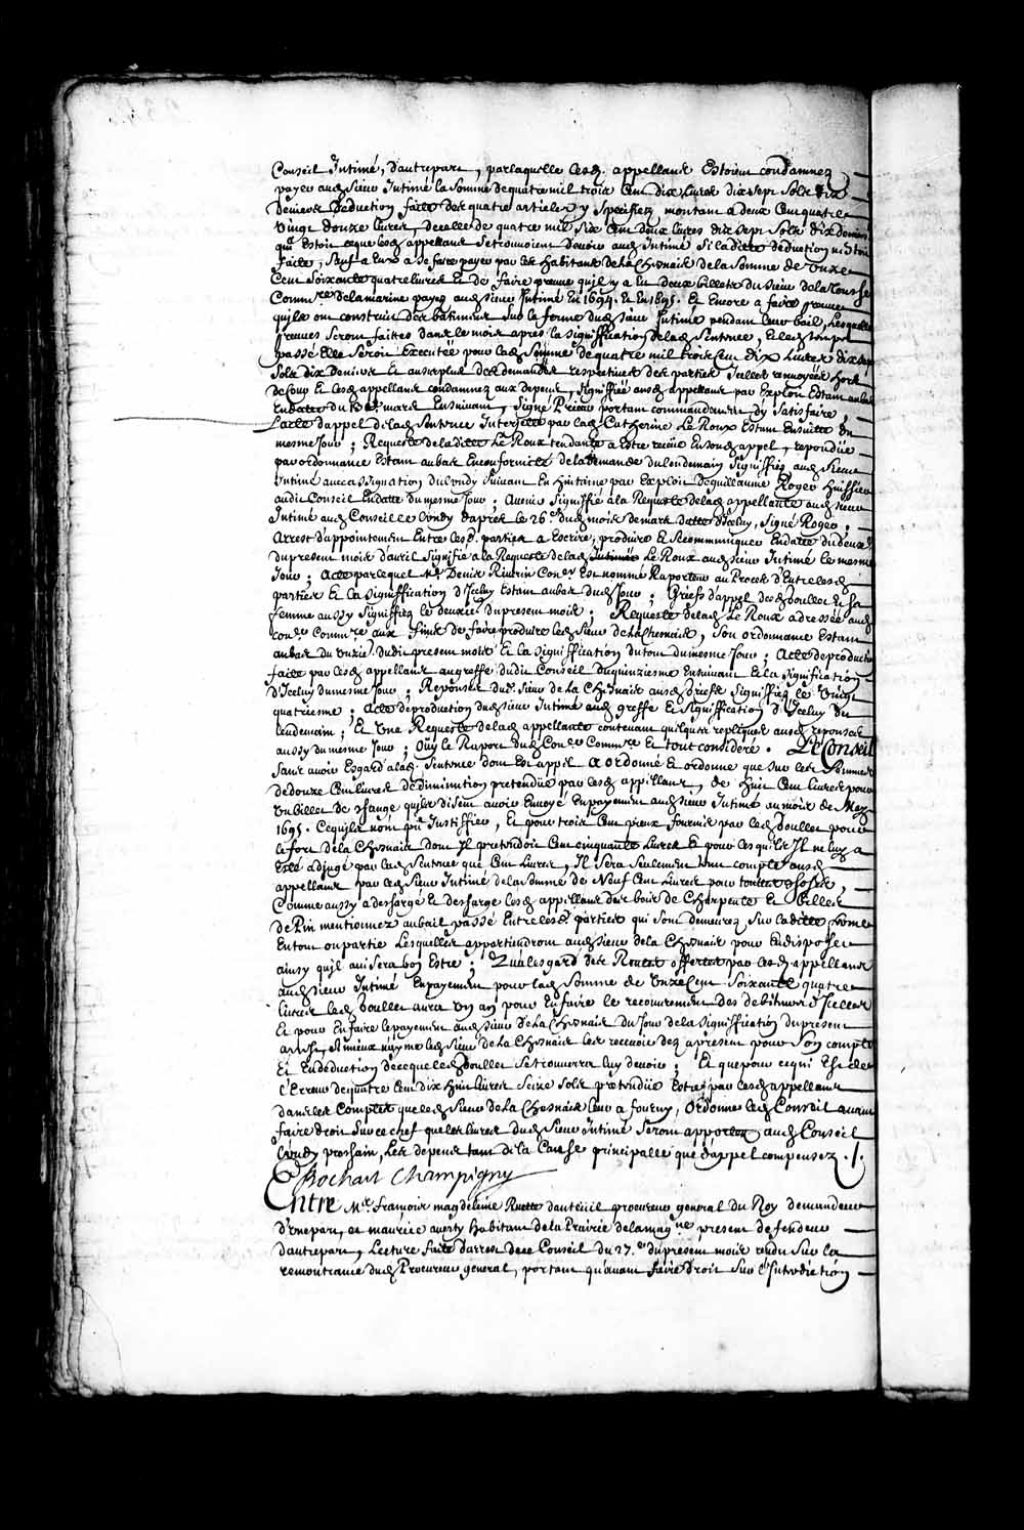 Conseil Intimé, d'autre part, par laquelle lesd. appellans estoient condamnez
payer aud. sieur Intimé la somme de quatre mil trois cent dix livres dix sept sols dix
deniers deduction faite des quatre articles y specifiez montant a deux cent quatre
vingt douze livres, de celle de quatre mil six cent deux livres dix sept sols dix deniers
qui estoit ce que lesd. appellans se trouvoient devoir aud. Intimé si la ditte deduction n'estoit
faite, sauf a eux a se faire payer par les habitans de la Chesnais de la somme de unze
cent soixante quatre livres et de faire preuve qu'il y a eu deux billets du sieur de la Tousche
Comm.re de la marine payez aud. sieur Intimé en 1694. et en 1695. et encore a faire preuve
qu'ils ont construit des batimens sur la ferme dud. sieur Intimé pendant leur bail, lesquelles
preuves seront faittes dans le mois apres la signiffication de lad. sentence, et led. temps
passé elle seroit executée pour lad. somme de quatre mil trois cent dix livres dix sept
sols dix deniers et au surplus des demandes respectives des parties icelles renvoyées hors
de Cour et lesd. appellans condamnez aux depens, signiffiée ausd. appellans par exploit estant au bas
en datte du mars ensuivant, signé Prieur portant commandement d'y satisfaire,
L'acte d'appel de lad. sentence interjetté par lad. Catherine Le Roux estant ensuitte du
mesme jour ; Requeste de la ditte Le Roux tendante a estre receüe en son d. appel, repondüe
par ordonnance estant au bas en conformité de la demande du lendemain signiffiez aud. sieur
Intimé avec assignation du lundy suivant en huitaine par exploit de guillaume Roger huissier
audit Conseil en datte du mesme jour ; Avenir signiffié a la Requeste de lad. appellante aud. sieur
Intimé aud. Conseil le lundy d'apres le 26.e dud. mois de mars datté d'iceluy, signé Roger ;
Arrest d'appointement entre lesd. parties a escrire, produire et se communiquer en datte du deux.e
du present mois d'avril signifié a la Requeste de lad. Le Roux aud. sieur Intimé le mesme
jour ; Acte par lequel M.e Denis Riverin Con.er est nommé Raporteur au Procés d'entre lesd.
parties et la signiffication d'iceluy estant au bas dud. jour ; Griefs d'appel desd. houllet et sa
femme aussy signiffiez le deuxie. du present mois ; Requeste de lad. Le Roux adressée aud.
con.er Comm.re aux fins de faire produire led. sieur de la Chesnais, son ordonnance estant
au bas du unzie. dudit present mois et la signiffication du tout du mesme jour ; Acte de production
faite par lesd. appellans au greffe dudit Conseil du quinziesme ensuivant et la signification
d'iceluy du mesme jour ; Reponses dud. sieur de la Chesnais ausd. griefs signiffiez le vingt
quatriesme ; Acte de production dud. sieur Intimé aud. greffe et signiffication d'iceluy du
lendemain ; et une Requeste de lad. appellante contenant quelques repliques ausd. reponses
aussy du mesme jour ; Oüy le Raport dud. Con.er Comm.re et tout consideré. Le Conseil
sans avoir esgard a lad. sentence dont est appel a ordonné et ordonne que sur les sommes
de douze cent livres de diminution pretendüe par lesd. appellans, de huit cent livres pour
un billet de change qu'ils disent avoir envoyé en payement aud. sieur Intimé au mois de May
1695. Ce qu'ils n'ont pu justiffier, et pour trois cent pieux fournis par led. houllet pour
le fort de la Chesnais dont il pretendoit cent cinquante livres et pour lesquels il ne luy a
esté adjugé par lad. sentence que cent livres, il sera seulement tenu compte ausd.
appellans par led. sieur Intimé de la somme de neuf cent livres pour toutes choses,
Comme aussy a deschargé et descharge lesd. appellans des bois de charpente et billes
de Pin mentionnez au bail passé entre lesd. parties qui sont demeurez sur la ditte ferme
en tout ou partie lesquelles appartiendront aud. sieur de la Chesnais pour en disposer
ainsy qu'il avisera bon estre ; Et a l'esgard des Rentes offertes par lesd. appellans
aud. sieur Intimé en payement pour lad. somme de unze cent soixante quatre
livres led. houllet aura un an pour en faire le recouvrement des debiteurs d'icelles
et pour en faire le payement aud. sieur de la Chesnais du jour de la signiffication du present
arrest, si mieux n'ayme led. sieur de la Chesnais les recevoir dez a present pour son compte
et en deduction de ce que led. houllet se trouvera luy devoir ; Et que pour ce qui est de
l'erreur de quatre cent dix huit livres seize sols pretendüe estre par lesd. appellans
dans les comptes que led. sieur de la Chesnais leur a fourny, ordonne led. Conseil avant
faire droit sur ce chef que les livres dud. sieur Intimé seront apportez aud. Conseil
lundy prochain, les depens tant de la cause principalle que d'appel compensez ./.
Bochart Champigny
Entre M.e francois magdeleine Ruette dauteüil procureur general du Roy demandeur
d'une part, et maurice averty habitant de la Prairie de la mag.ne present defendeur
d'autre part, Lecture faite d'arrest de ce Conseil du 27.e du present mois rendu sur la
remontrance dud. Procureur general, portant qu'avant faire droit sur l'Interdiction